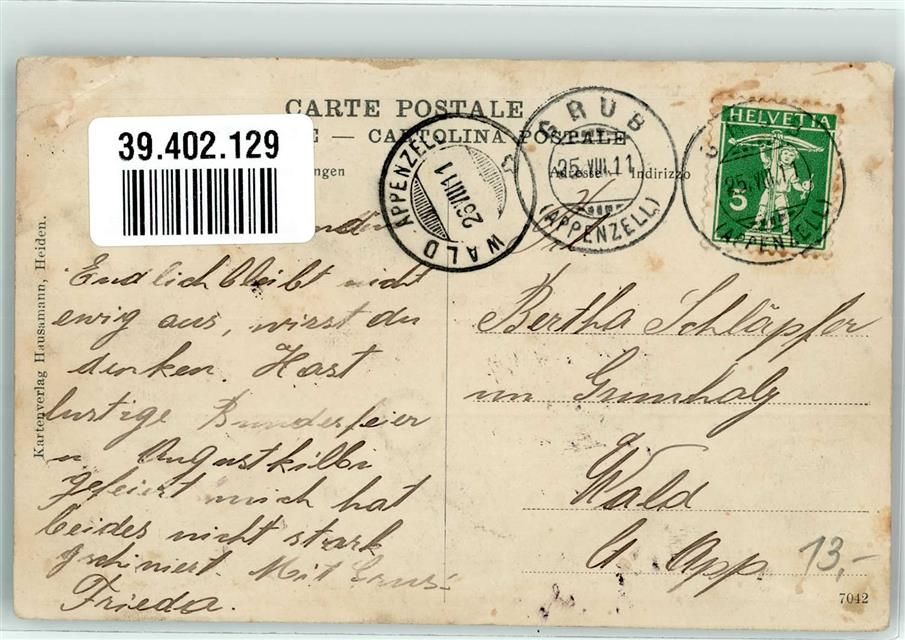 CARTE POSTALE
— CARTOLINA POSTALE
39.402.129
Adresse Indirizzo
Kartenverlag Hausamann, Heiden.
WALD APPENZELL
25 VIII 11
GRUB
25.VIII.11
(APPENZELL)
HELVETIA
5
25.VIII.11
(APPENZELL)
Endlich bleibt nicht
ewig aus, wirst du
denken. Hast
lustige Bundesfeier
u Augustkilbi
gefeiert mich hat
beides nicht stark
geniert. Mit Gruss
Frieda.
Bertha Schläpfer
im Grunholz
Wald
Ct. App.
13,-
7042